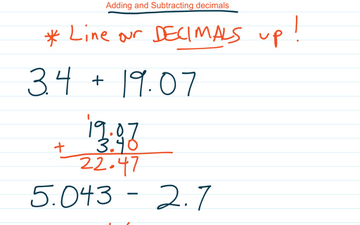 Adding and Subtracting decimals
* Line our DECIMALS up!
3.4 + 19.07
1
19.07
+ 3.40
22.47
5.043 - 2.7